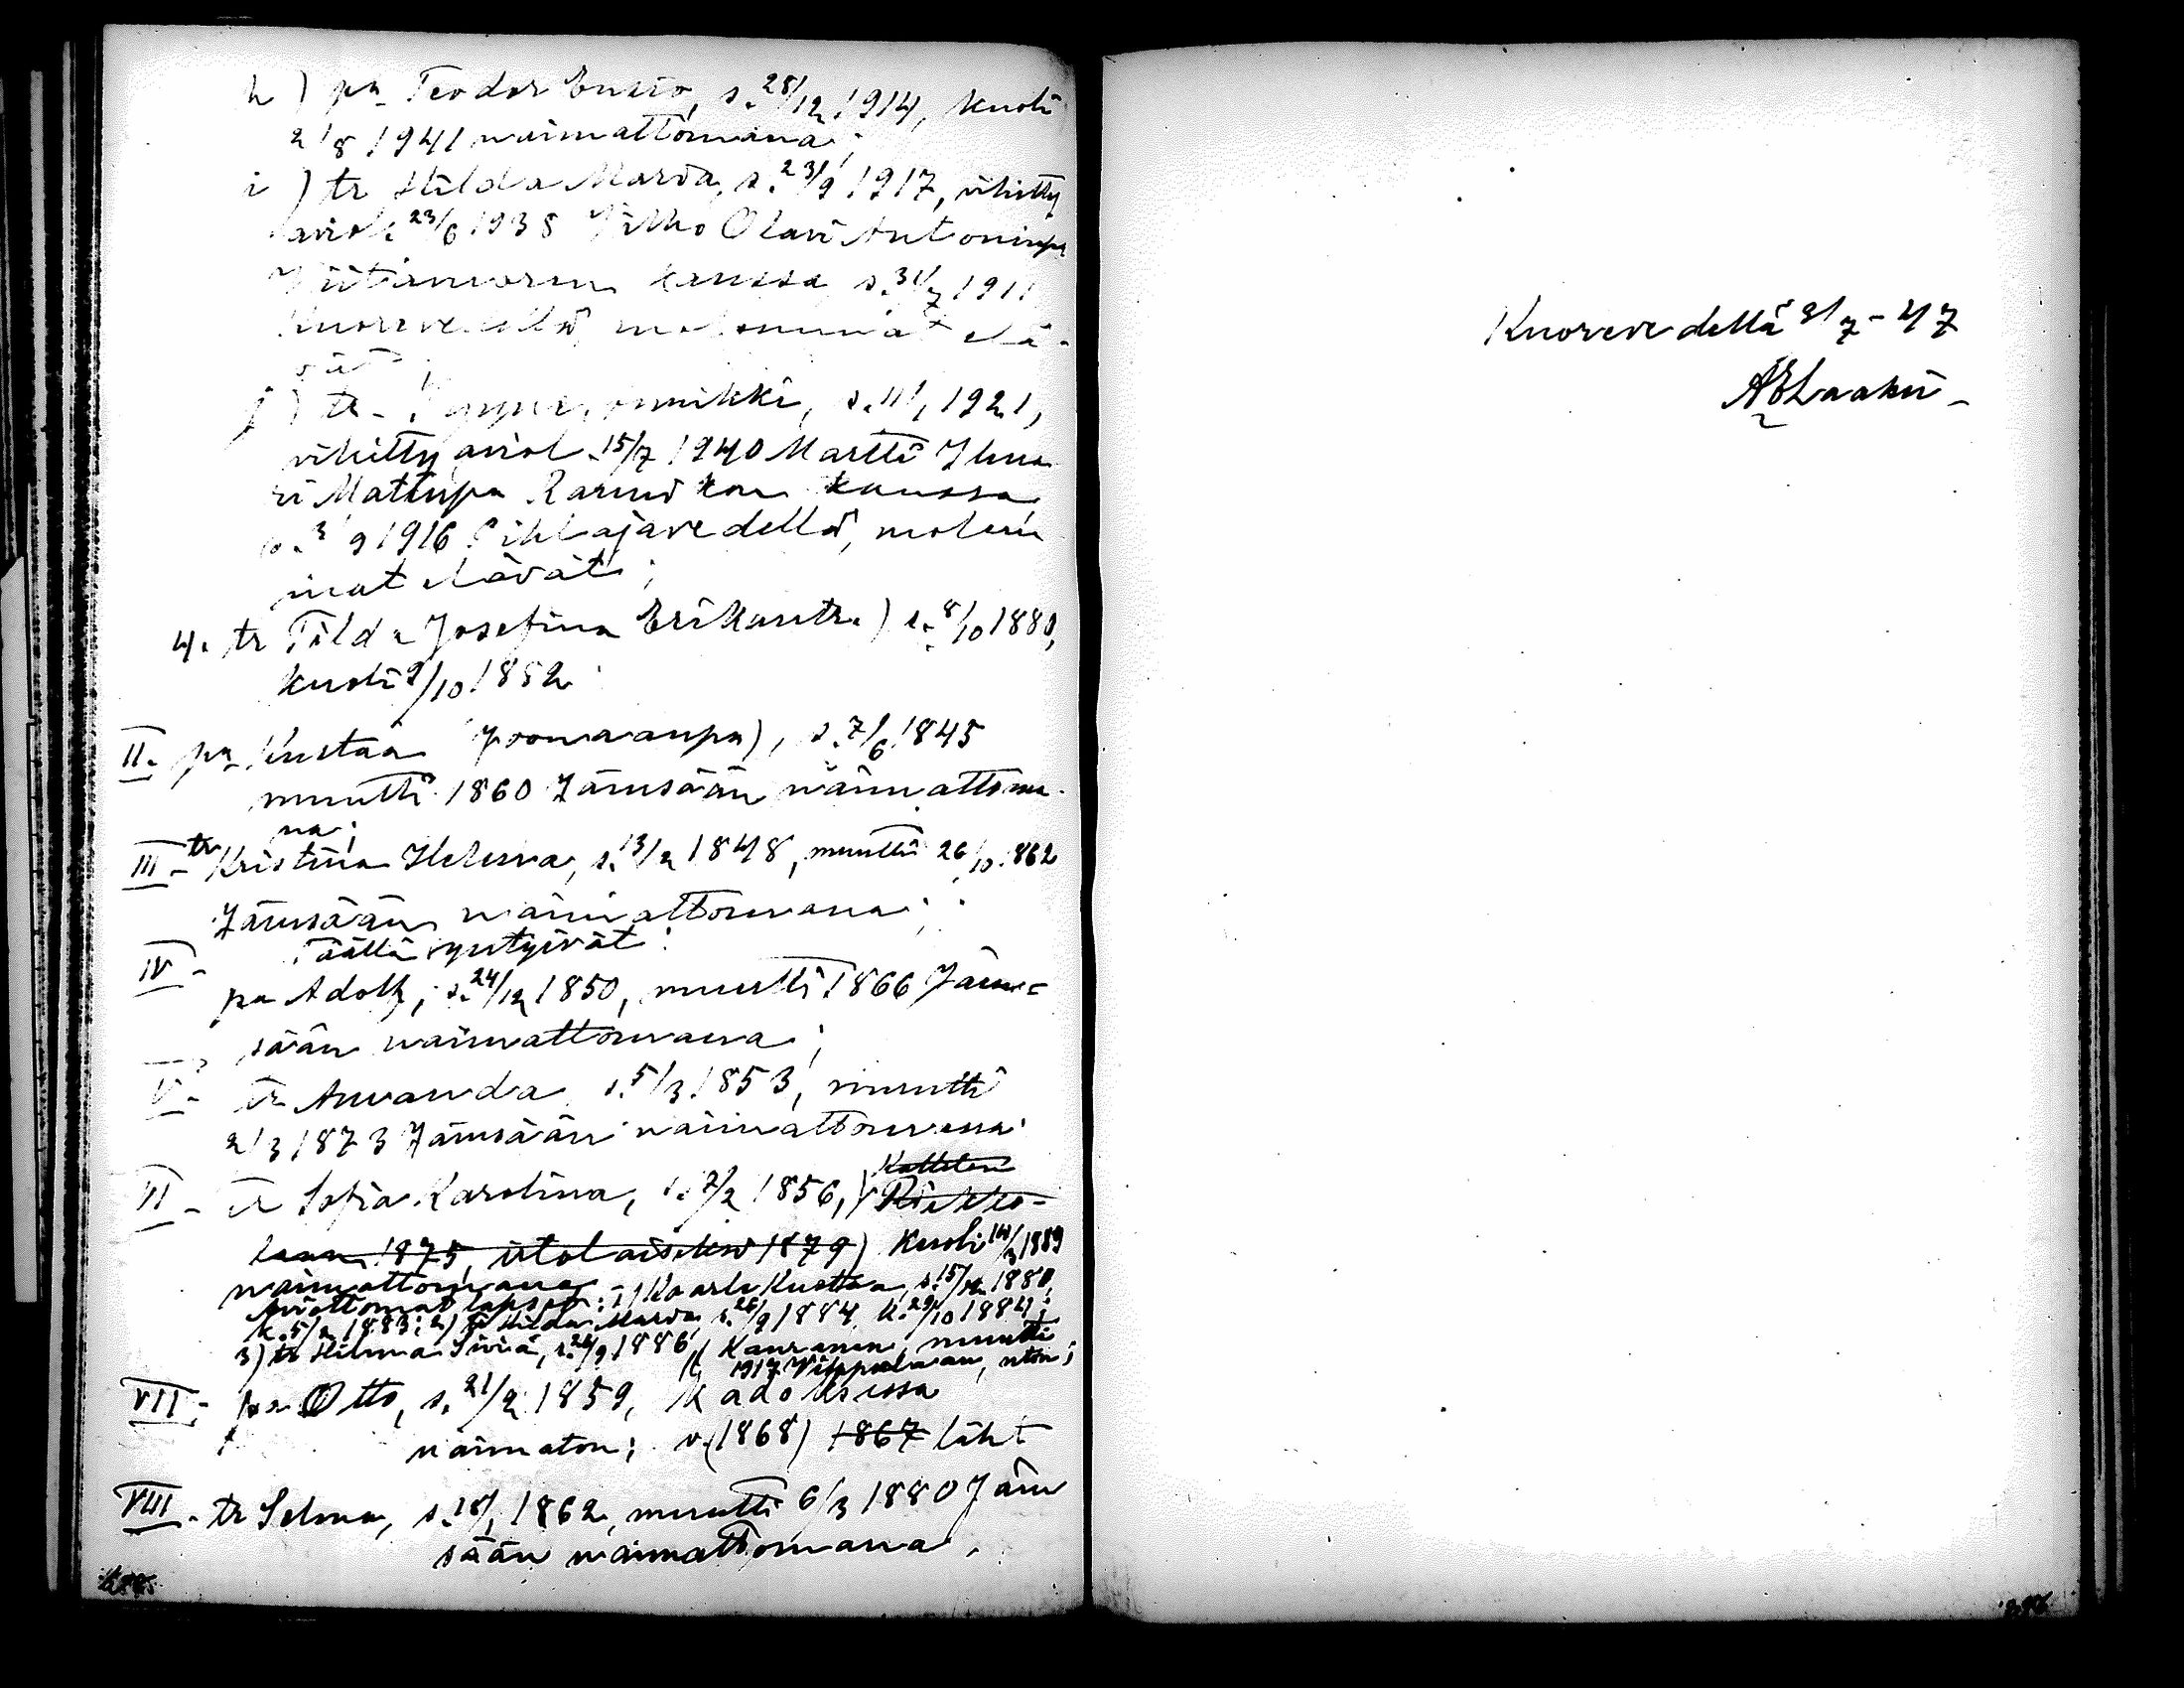 h) pa Teodor Ensio, s. 28/12 1914, kuoli
2/8 1941 naimattomana;
i) tr Hilda Maria, s. 23/9 1917, vihitty
aviol. 23/6 1938 Yrkko Olavi Antoninpa
kanssa s. 31/7 1911
Kuorevedellä molemmat elä-
vät;
j) tr. Annikki, s. 11/1 1921,
vihitty aviol. 15/7 1940 Martti Ilma
ri Matinpa kanssa
s. 3/9 1916 Pihlajavedellä, molem
mat elävät;
4. tr Tilda Josefina Erikantr.) s. 8/10 1880,
kuoli 9/10 1882
II. pa Kustaa Joonaanpa), s. 7/6 1845
muutti 1860 Jämsään naimattoma-
na;
III- tr Kristina Helena, s. 13/2 1848, muutti 26/10 1862
Jämsään naimattomana;
Täällä syntyivät:
IV- pa Adolf, s. 24/12 1850, muutti 1866 Jäm=
sään naimattomana;
V- tr Amanda s. 5/3 1853, muutti
2/3 1873 Jämsään naimattomana
VI- tr Sofia Karolina, s. 7/2 1856,
1875, itolaiseksi 1879) Kuoli 14/3 1889
naimattomana
Aviottomat lapset: 1) Kaarle Kustaa, s. 15/12 1880,
k. 5/2 1883; 2) tr Hilda Maria s. 26/9 1884, k. 29/10 1884;
3) tr Hilma Siviä, s. 24/9 1886, Kauranen, muutti
1917 Vilppulaan, nton;
VII- pa Otto, s. 21/2 1859, Kadoksissa
naimaton; v. (1868) 1867 läht
VIII- tr Selma, s. 18/1 1862, muutti 6/3 1880 Jäm
sään naimattomana.
Kuorevedellä 31/7-47